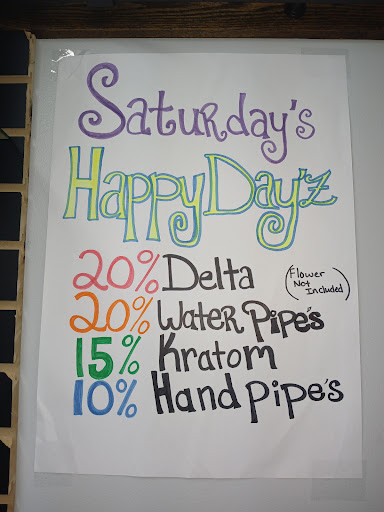 Saturday's
Happy Day'z
20% Delta (Flower Not Included)
20% Water Pipe's
15% Kratom
10% Hand pipe's